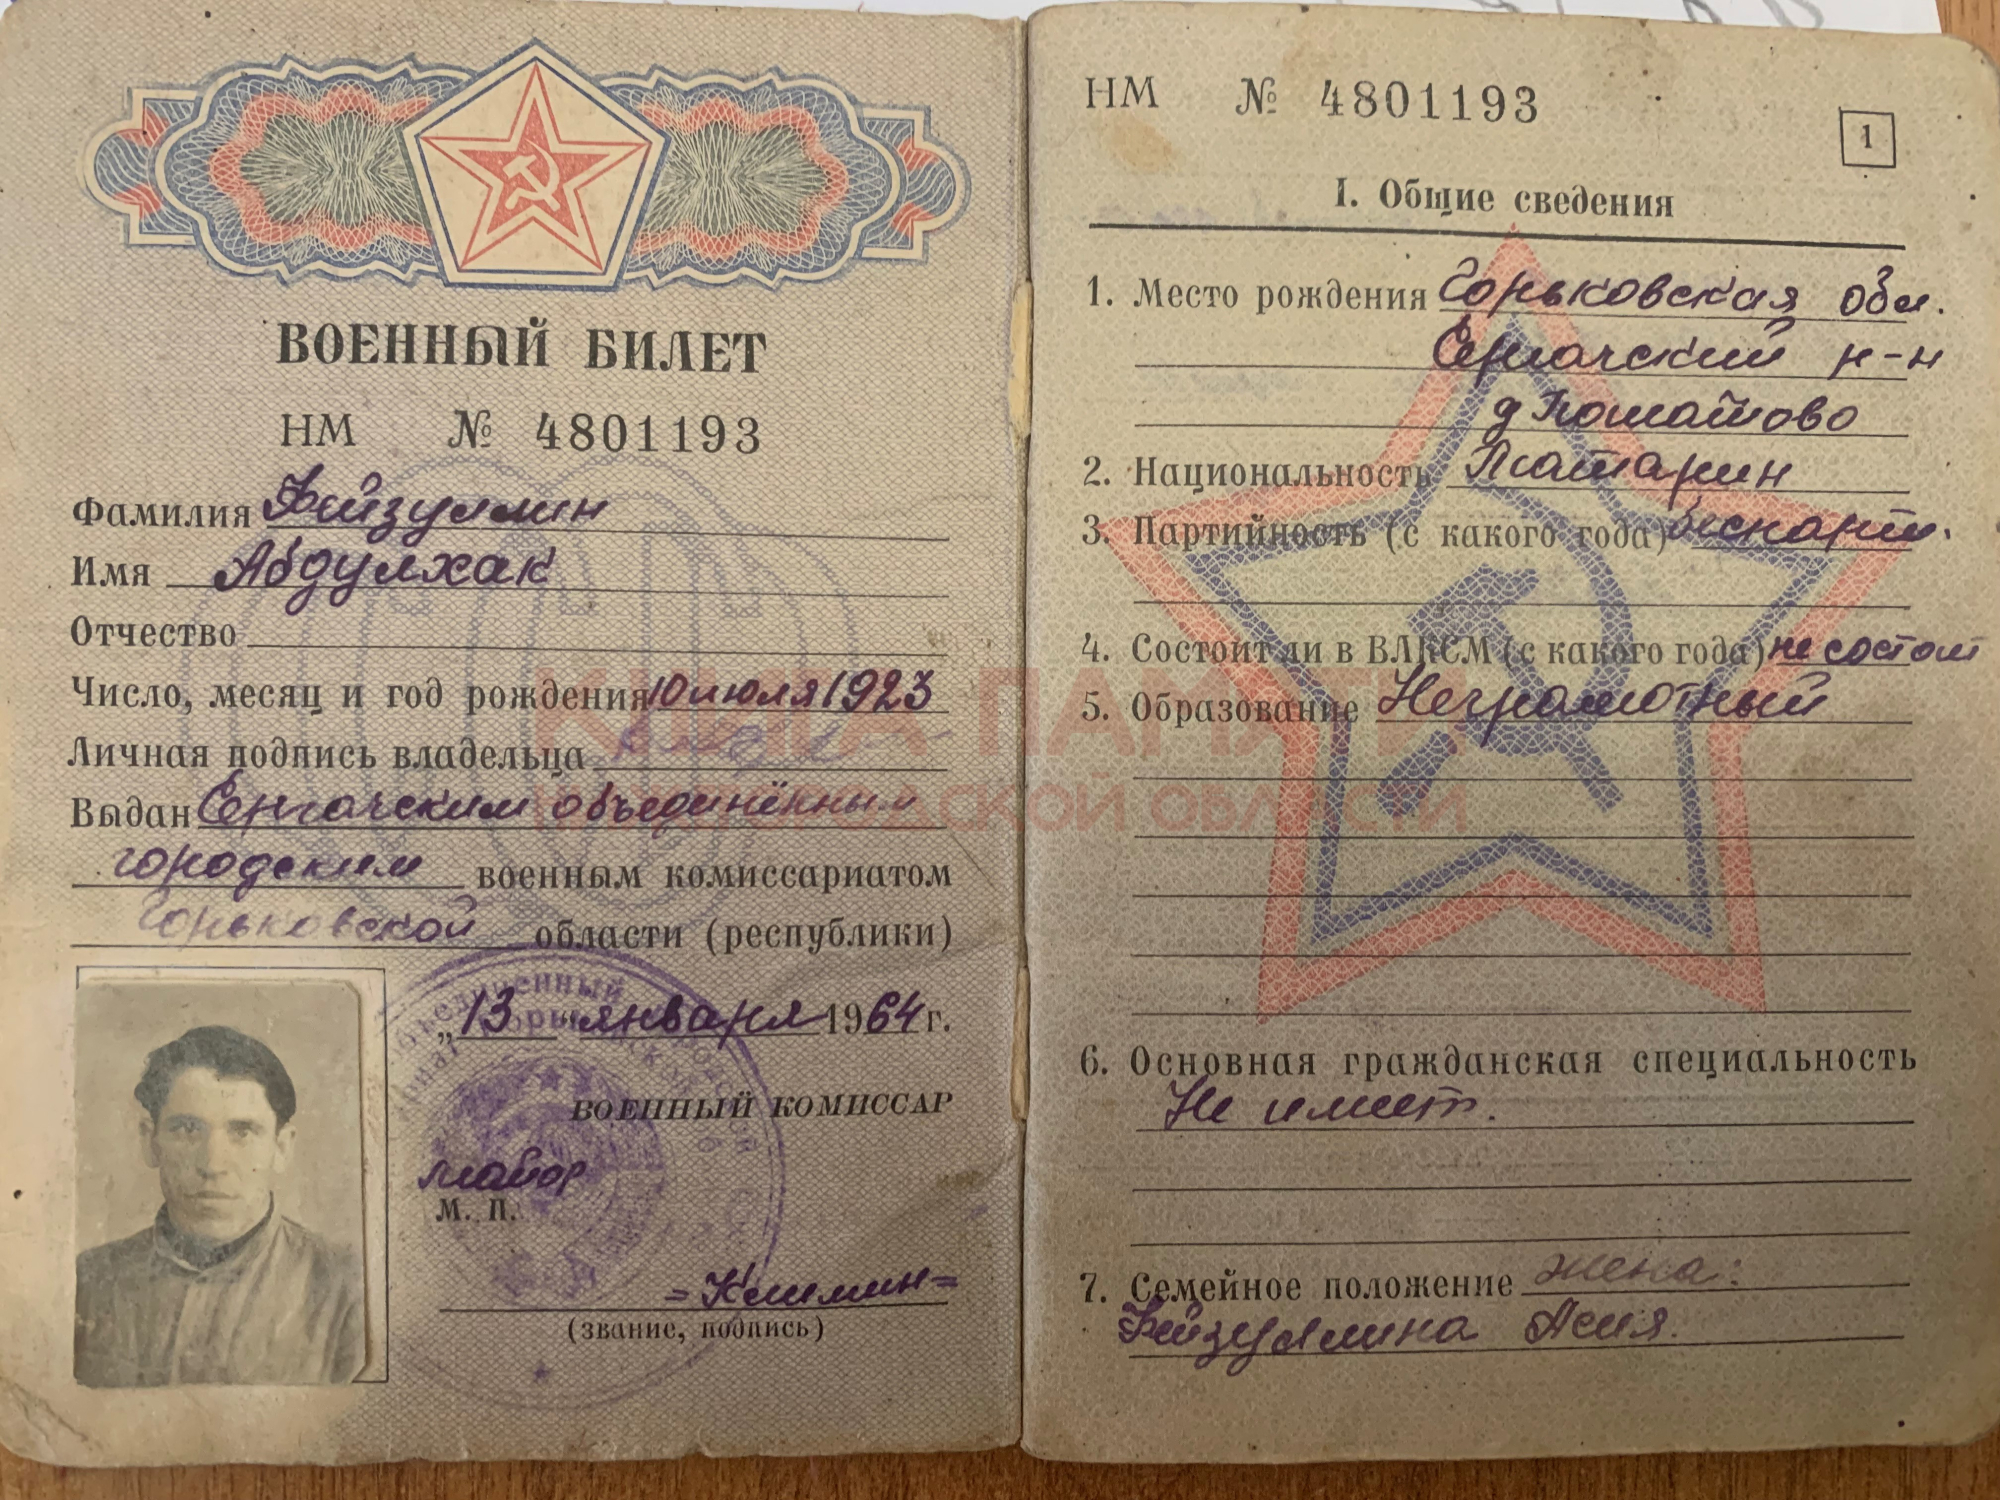 ВОЕННЫЙ БИЛЕТ
НМ № 4801193
Фамилия Фейзуллин
Имя Абдулхак
Отчество
Число, месяц и год рождения 10 июля 1923
Личная подпись владельца
Выдан Сергачским объединённым
городским военным комиссариатом
Горьковской области (республики)
„13 “ января 1964 г.
ВОЕННЫЙ КОМИССАР
майор
М. П.
(звание, подпись)
НМ № 4801193
1
I. Общие сведения
1. Место рождения Горьковская обл.
Сергачский р-н
д
2. Национальность Татарин
3. Партийность (с какого года) беспарти.
4. Состоит ли в ВЛКСМ (с какого года) не состоит
5. Образование Неграмотный
6. Основная гражданская специальность
Не имеет.
7. Семейное положение жена:
Фейзуллина Асия.
КНИГА ПАМЯТИ
НИЖЕГОРОДСКОЙ ОБЛАСТИ